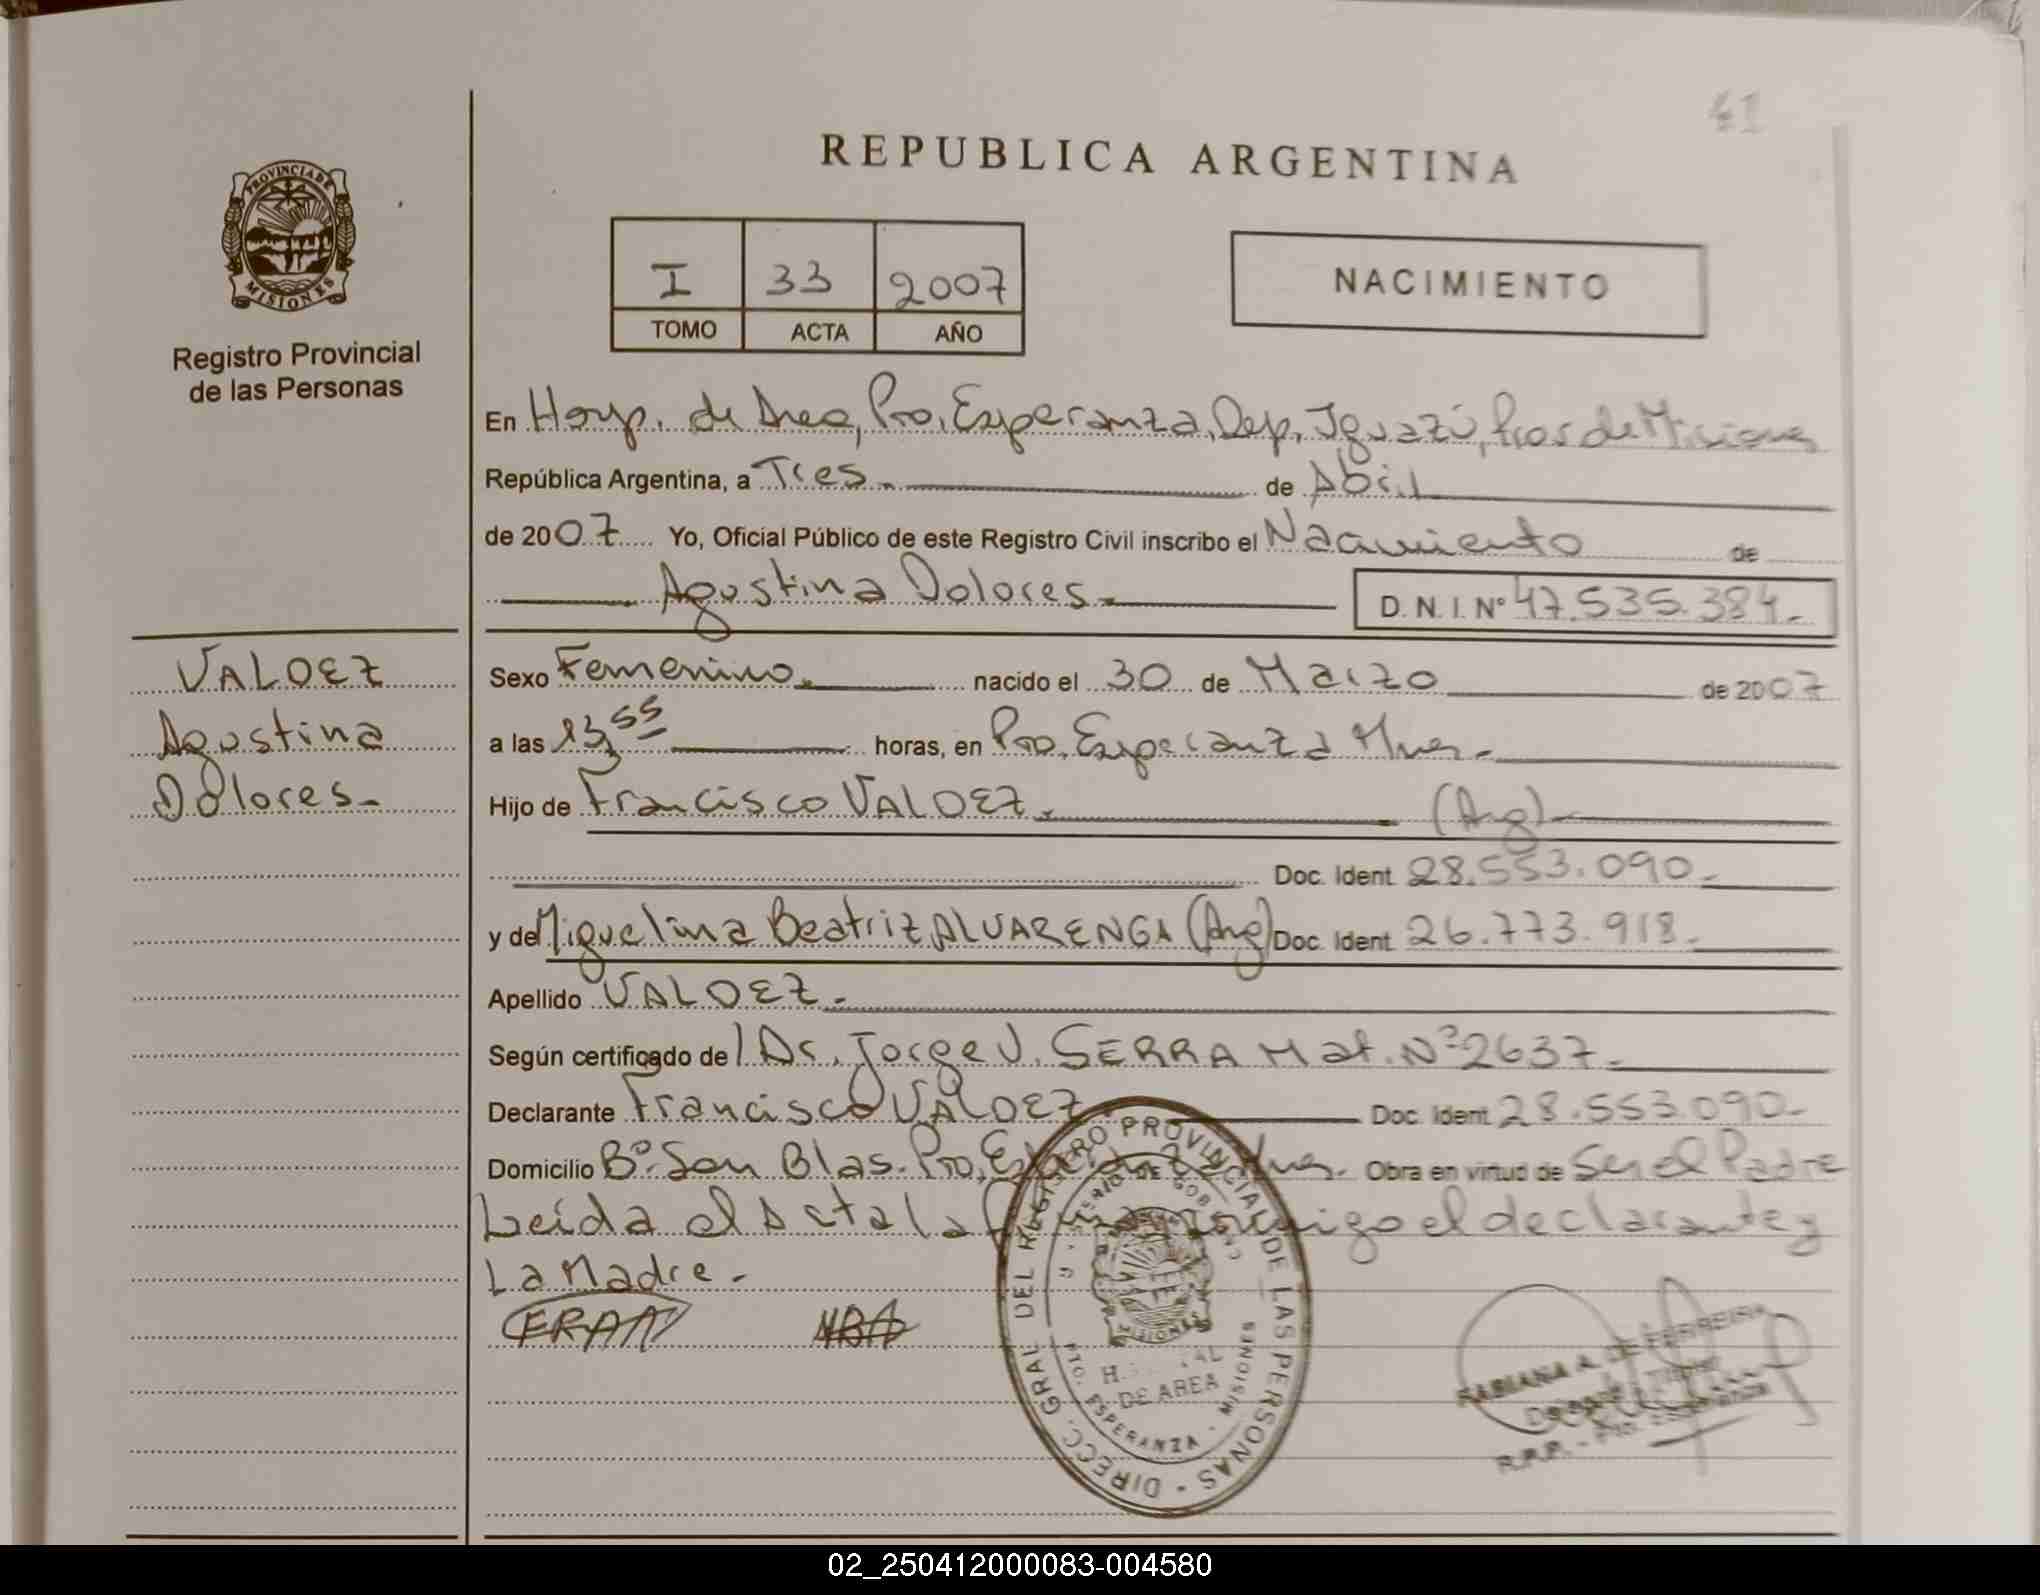 41
REPUBLICA ARGENTINA
PROVINCIA DE
MISIONES
Registro Provincial
de las Personas
I 33 2007
TOMO ACTA AÑO
NACIMIENTO
En Hosp. de Area, Pto. Esperanza, Dep. Iguazú, Pcos de Misiones
República Argentina, a Tres.- de Abril
de 2007 Yo, Oficial Público de este Registro Civil inscribo el Nacimiento de
Agustina Dolores.- D. N. I. Nº 47.535.384.-
VALDEZ
Agustina
Dolores.-
Sexo Femenino.- nacido el 30 de Marzo de 2007
a las 13,55 horas, en Pto. Esperanza Mnes.-
Hijo de Francisco VALDEZ.- (Arg)-
Doc. Ident. 28.553.090.-
y de Miguelina Beatriz ALVARENGA (Arg) Doc. Ident. 26.773.918.-
Apellido VALDEZ.-
Según certificado de l Dr. Jorge J. SERRA Mat. Nº 2637.-
Declarante Francisco VALDEZ.- Doc. Ident. 28.553.090-
Domicilio Bº San Blas. Pto. Esperanza Mnes. Obra en virtud de Ser el Padre
Leída el Acta la firman conmigo el declarante y
La Madre.-
FRAN
MBA
DIRECC. GRAL. DEL REGISTRO PROVINCIAL DE LAS PERSONAS
DE GOB
MISIONES
DE AREA
PTO. ESPERANZA - MISIONES
FABIANA A. DE FERREIRA
R.P.P. - Pto. Esperanza
02_250412000083-004580